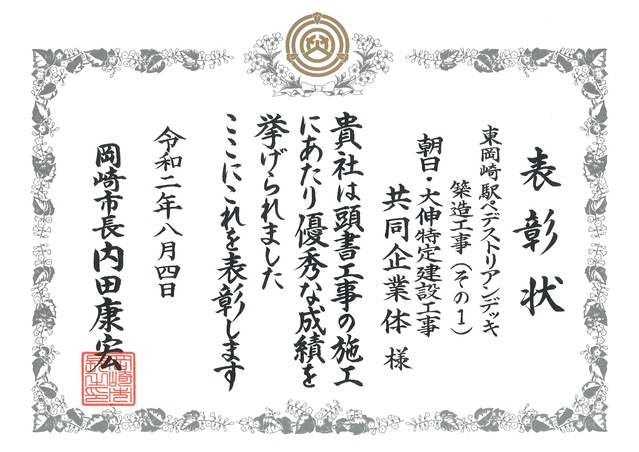 表彰状
東岡崎駅ペデストリアンデッキ
築造工事(その1)
朝日・大伸特定建設工事
共同企業体 様
貴社は頭書工事の施工
にあたり優秀な成績を
挙げられました
ここにこれを表彰します
令和二年八月四日
岡崎市長 内田康宏
岡崎市長之印